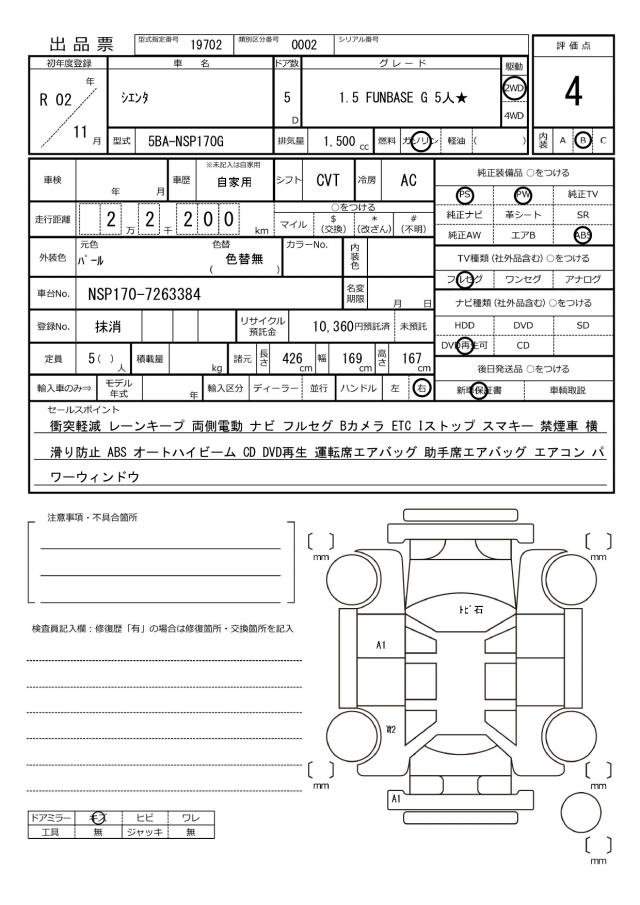 出品票 型式指定番号 19702 類別区分番号 0002 シリアル番号
評価点
初年度登録 車名 ドア数 グレード 駆動
R 02 年 11 月 シエンタ 5 D 1.5 FUNBASE G 5人★ 2WD 4WD
4
型式 5BA-NSP170G 排気量 1.500 cc 燃料 ガソリン 軽油 ( ) 内装 A B C
車検 年 月 車歴 ※未記入は自家用 自家用 シフト CVT 冷房 AC
純正装備品 ○をつける
PS PW 純正TV
走行距離 2 万 2 千 2 0 0 km ○をつける
マイル $ (交換) * (改ざん) # (不明)
純正ナビ 革シート SR
純正AW エアB ABS
外装色 元色 パール 色替 色替無 ( ) カラーNo. 内装色
TV種類(社外品含む) ○をつける
フルセグ ワンセグ アナログ
車台No. NSP170-7263384 名変期限 月 日
ナビ種類(社外品含む) ○をつける
登録No. 抹消 リサイクル預託金 10,360円預託済 未預託
HDD DVD SD
DVD再生可 CD
定員 5( ) 人 積載量 kg 諸元 長さ 426 cm 幅 169 cm 高さ 167 cm
後日発送品 ○をつける
輸入車のみ⇒ モデル年式 年 輸入区分 ディーラー 並行 ハンドル 左 右
新車保証書 車輌取説
セールスポイント
衝突軽減 レーンキープ 両側電動 ナビ フルセグ Bカメラ ETC Iストップ スマキー 禁煙車 横
滑り防止 ABS オートハイビーム CD DVD再生 運転席エアバッグ 助手席エアバッグ エアコン パ
ワーウィンドウ
注意事項・不具合箇所
[ ] mm
[ ] mm
トビ石
検査員記入欄：修復歴「有」の場合は修復箇所・交換箇所を記入
A1
W2
[ ] mm
[ ] mm
A1
ドアミラー キズ ヒビ ワレ
工具 無 ジャッキ 無
[ ] mm